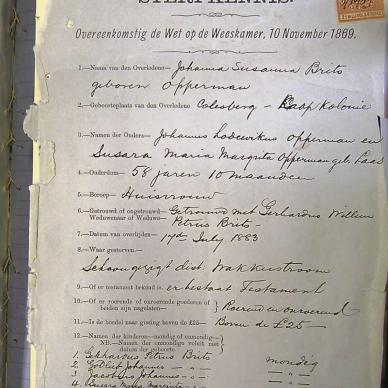 STERFKENNIS.
Overeenkomstig de Wet op de Weeskamer, 10 November 1869.
1.—Naam van den Overledene— Johanna Susanna Brits
geboren Opperman
2.—Geboorteplaats van den Overledene Colesberg — Kaap Kolonie
3.—Namen der Ouders— Johannes Lodewikus Opperman en
Susara Maria Margrita Opperman geb. Laas
4.—Ouderdom— 58 jaren 10 maanden
5.—Beroep— Huisvrouw
6.—Getrouwd of ongetrouwd— Getrouwd met Gerhardus Willem
Weduwenaar of Weduwe— Petrus Brits —
7.—Datum van overlijden— July 1883
8.—Waar gestorven.—
dist: Wakkerstroom
9.—Of er testament bekend is. er bestaat Testament
10.—Of er roerende of onroerende goederen of
beiden zijn nagelaten— Roerend en onroerend
11.—Is de boedel naar gissing boven de £25— Boven de £25 —
12.—Namen der kinderen—mondig of onmondig—
NB.—Namen der onmondigen voluit met
datum der geboorte.
1. Petrus Brits mondig
2. Johannes
3. Johannes
4. Susara Maria